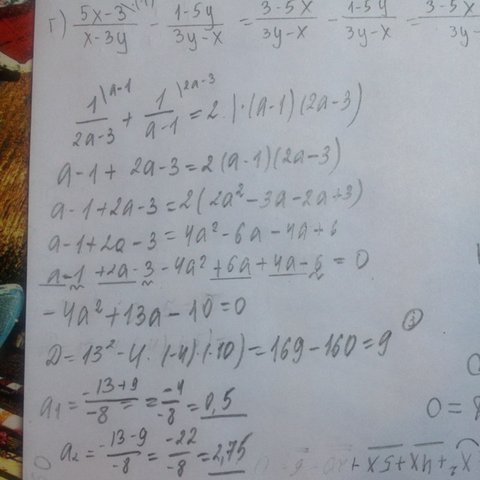 г) 5x-3/x-3y - 1-5y/3y-x = 3-5x/3y-x - 1-5y/3y-x = 3-5x/3y-
1\a-1/2a-3 + 1\2a-3/a-1 = 2 |·(a-1)(2a-3)
a-1 + 2a-3 = 2(a-1)(2a-3)
a-1+2a-3 = 2(2a²-3a-2a+3)
a-1+2a-3 = 4a²-6a-4a+6
a-1+2a-3-4a²+6a+4a-6 = 0
-4a²+13a-10=0
D=13²-4·(-4)·(-10)=169-160=9 ③
a₁ = -13+9/-8 = -4/-8 = 0,5
0=
a₂ = -13-9/-8 = -22/-8 = 2,75
x²+4x+5x+